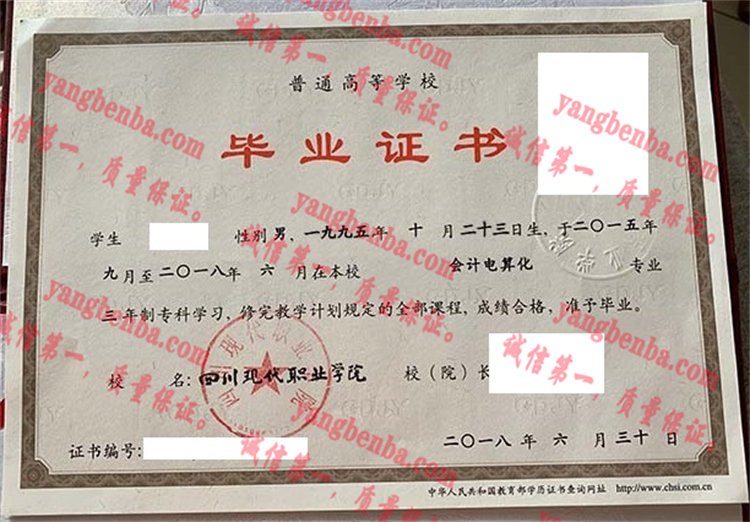 普通高等学校
毕业证书
学生 性别 男、一九九五年 十 月 二十三日生，于二〇一五年
九月至二〇一八年 六 月在本校 会计电算化 专业
三 年制专科学习，修完教学计划规定的全部课程，成绩合格，准予毕业。
校 名：四川现代职业学院 校（院）长
四川现代职业学院
证书编号：
二〇一八 年 六 月 三十 日
中华人民共和国教育部学历证书查询网址 http://www.chsi.com.cn
yangbenba.com
诚信第一，质量保证。
yangbenba.com
诚信第一，质量保证。
yangbenba.com
诚信第一，质量保证。
yangbenba.com
诚信第一，质量保证。
yangbenba.com
诚信第一，质量保证。
yangbenba.com
诚信第一，质量保证。
yangbenba.com
诚信第一，质量保证。